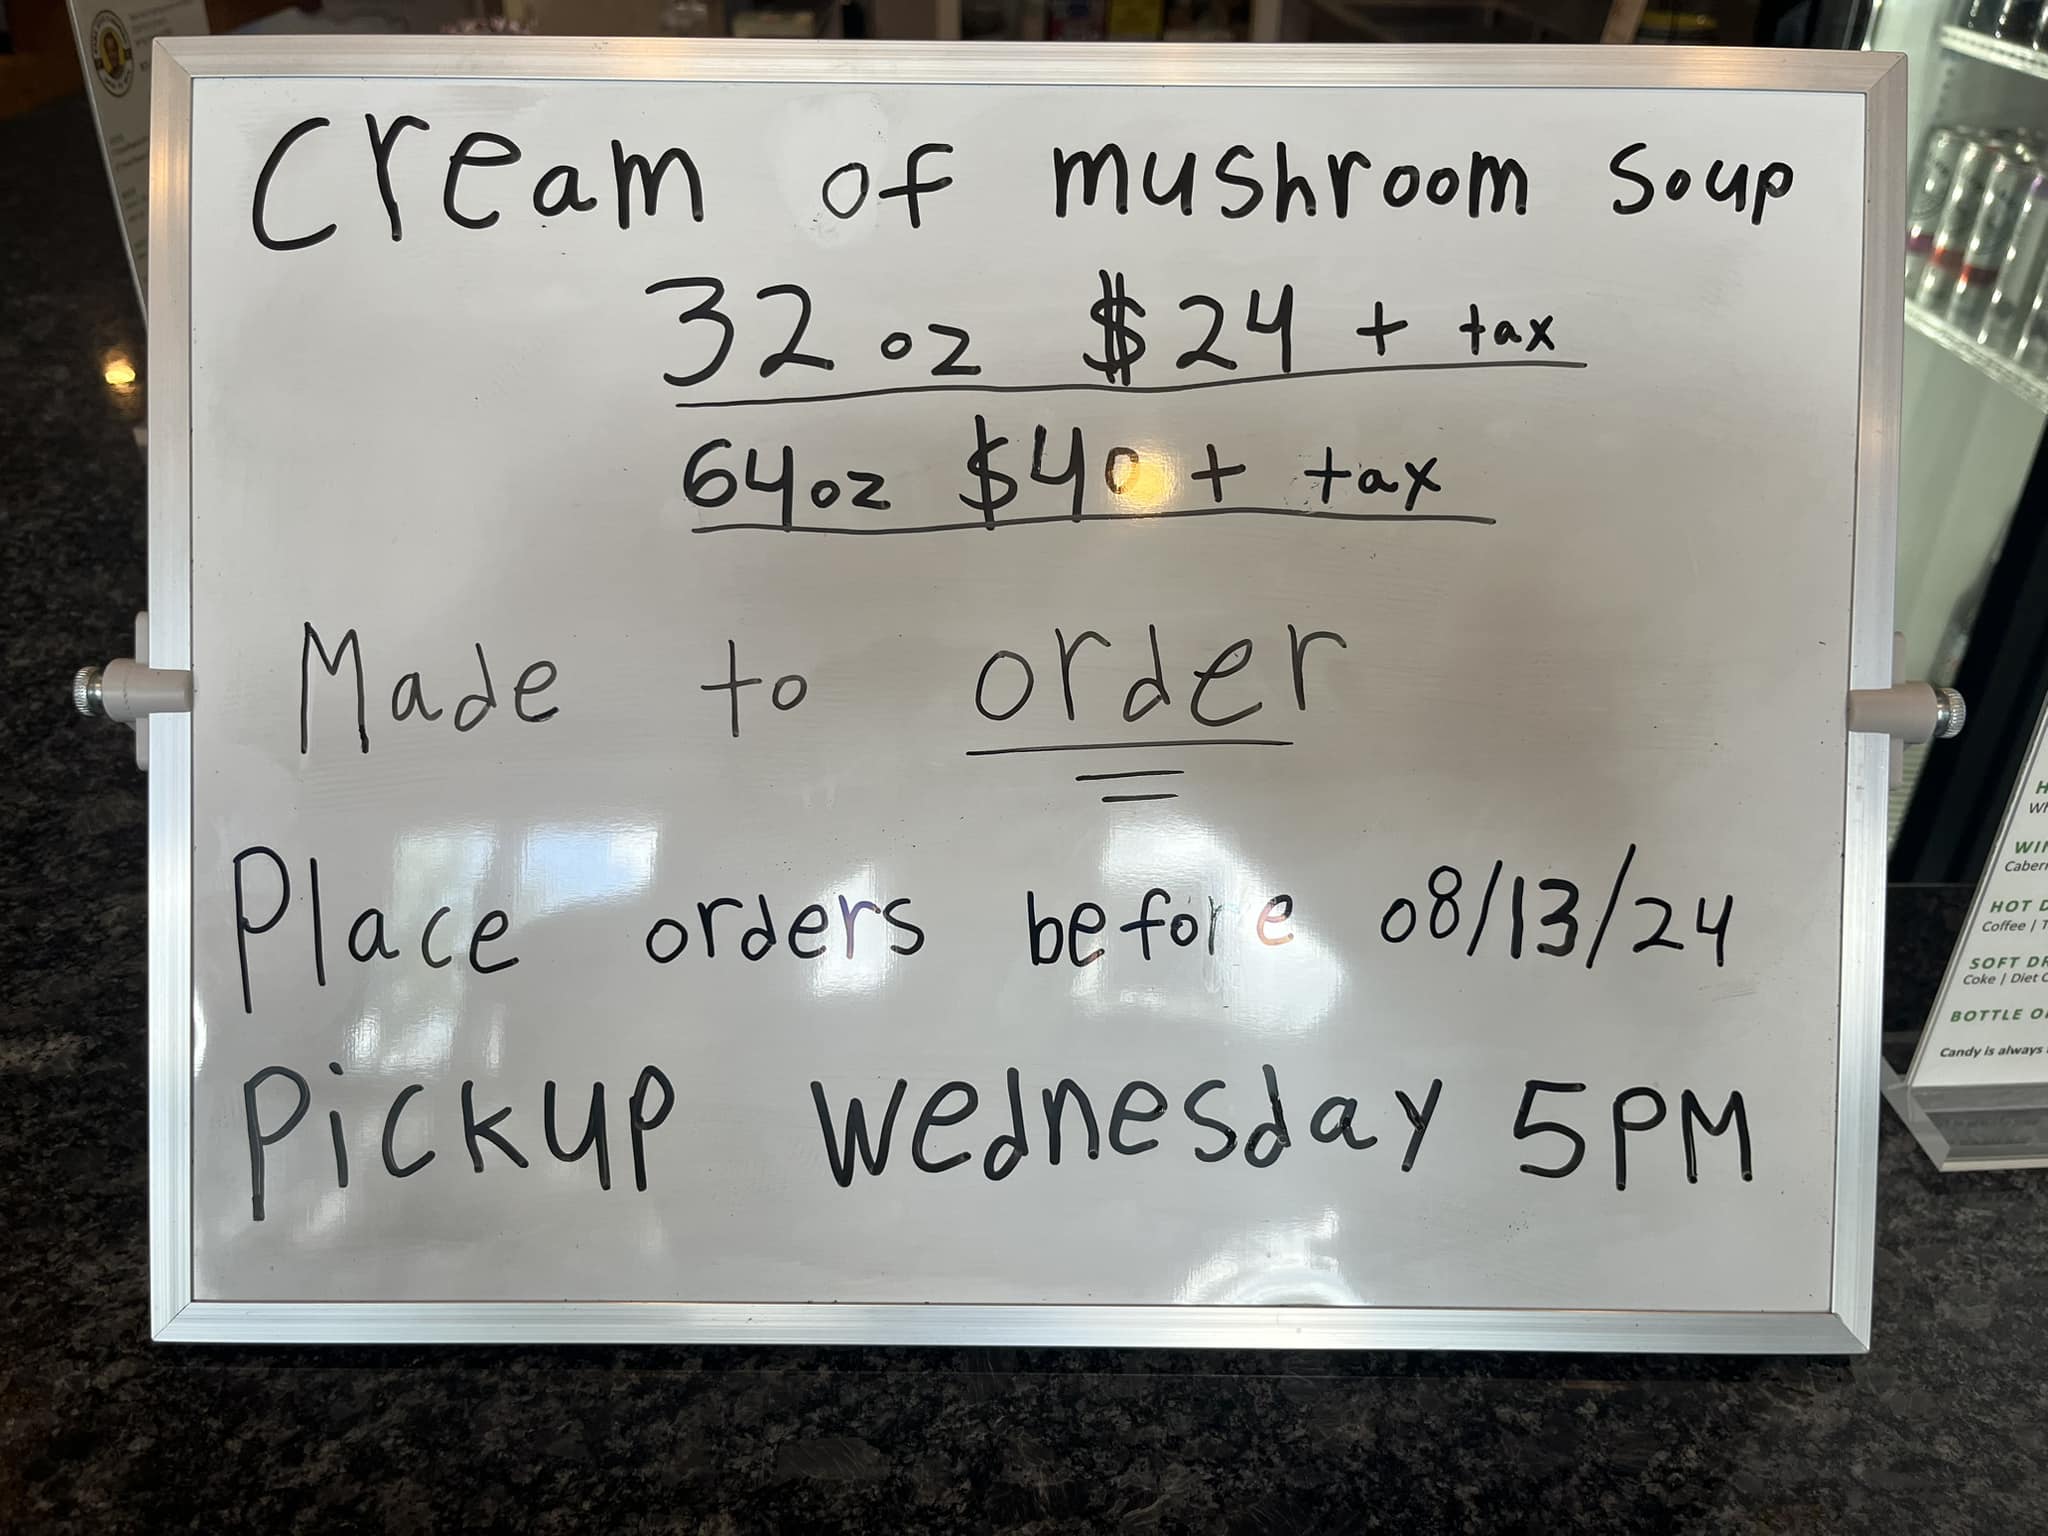 Cream of mushroom soup
32 oz $24 + tax
64 oz $40 + tax
Made to order
Place orders before 08/13/24
Pickup Wednesday 5PM
H
Wh
WIN
Cabern
HOT D
Coffee | T
SOFT DR
Coke | Diet C
BOTTLE O
Candy is always